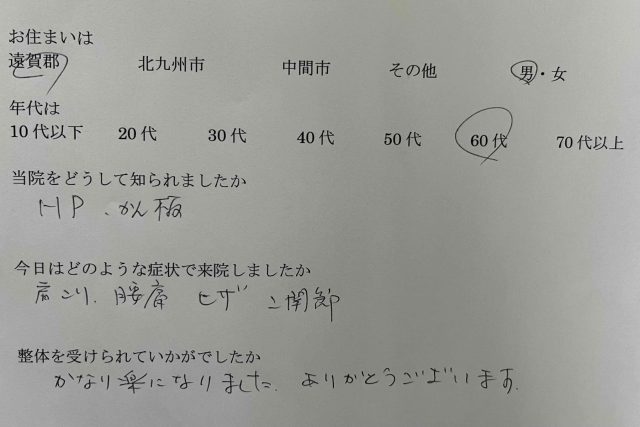 お住まいは
遠賀郡 北九州市 中間市 その他 男・女
年代は
10代以下 20代 30代 40代 50代 60代 70代以上
当院をどうして知られましたか
HP、かん板
今日はどのような症状で来院しましたか
肩こり、腰痛 ヒザ 関節
整体を受けられていかがでしたか
かなり楽になりました。ありがとうございます。